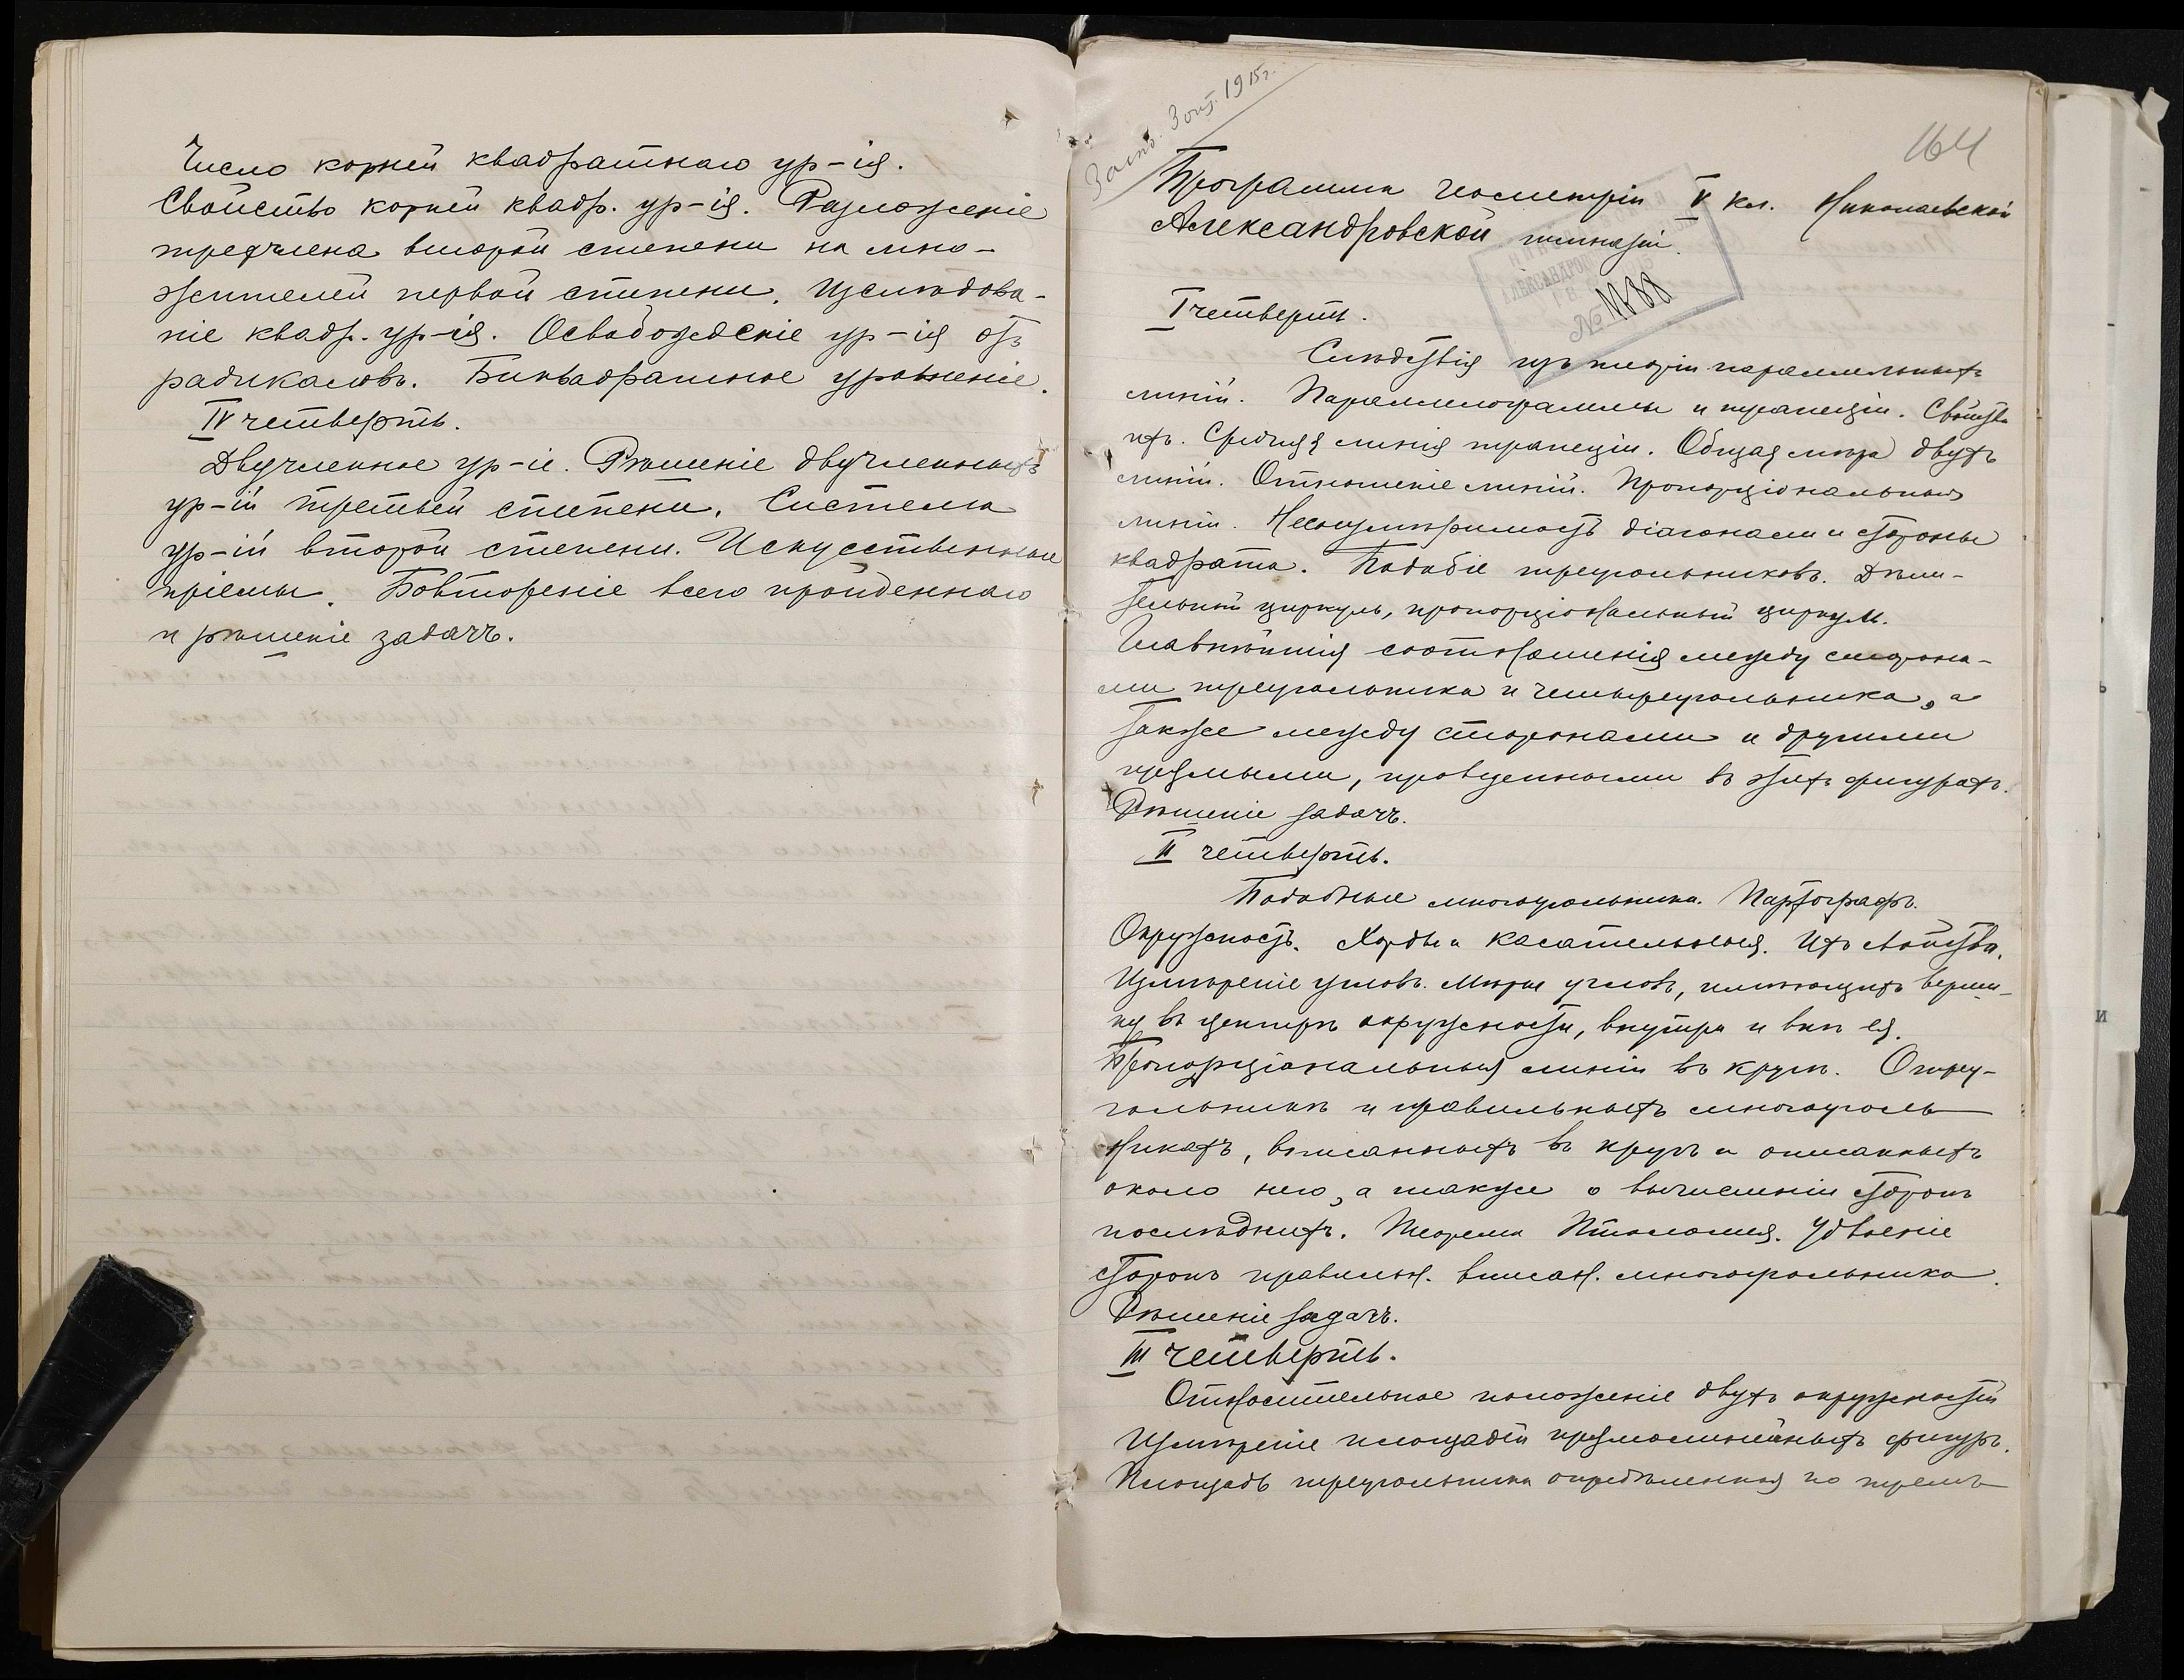 Число корней квадратнаго ур-ія.
Свойство корней квадр. ур-ія. Разложеніе
трехчлена второй степени на мно-
жителей первой степени. Изслѣдова-
ніе квадр. ур-ія. Освобожденіе ур-ія отъ
радикаловъ. Биквадратное уравненіе.
IV четверть.
Двучленное ур-іе. Рѣшеніе двучленныхъ
ур-ій третьей степени. Система
ур-ій второй степени. Искусственные
пріемы. Повтореніе всего пройденнаго
и рѣшеніе задачъ.
1915г.
164
Программа геометріи V кл. Николаевской
Александровской гимназіи.
№ 1188
I четверть.
Слѣдствія изъ теоріи параллельныхъ
линій. Параллелограммы и трапеціи. Свойства
ихъ. Средняя линія трапеціи. Общая мѣра двухъ
линій. Отношеніе линій. Пропорціональныя
линіи. Несоизмѣримость діагонали и стороны
квадрата. Подобіе треугольниковъ. Дѣли-
тельный циркуль, пропорціональный циркуль.
Главнѣйшія соотношенія между сторона-
ми треугольника и четыреугольника, а
также между сторонами и другими
прямыми, проведенными въ этихъ фигурахъ.
Рѣшеніе задачъ.
II четверть.
Подобные многоугольники. Пантографъ.
Окружность. Хорды и касательныя. Ихъ свойства.
Измѣреніе угловъ. Мѣры угловъ, имѣющихъ верши-
ну въ центрѣ окружности, внутри и внѣ ея.
Пропорціональныя линіи въ кругѣ. О треу-
гольникѣ и правильныхъ многоуголь
никахъ, вписанныхъ въ кругъ и описанныхъ
около него, а также о вычисленіи сторонъ
послѣднихъ. Теорема Птоломея. Удвоеніе
сторонъ правильн. вписан. многоугольника.
Рѣшеніе задачъ.
III четверть.
Относительное положеніе двухъ окружностей
Измѣреніе площадей прямолинейныхъ фигуръ.
Площадь треугольника опредѣленная по тремъ